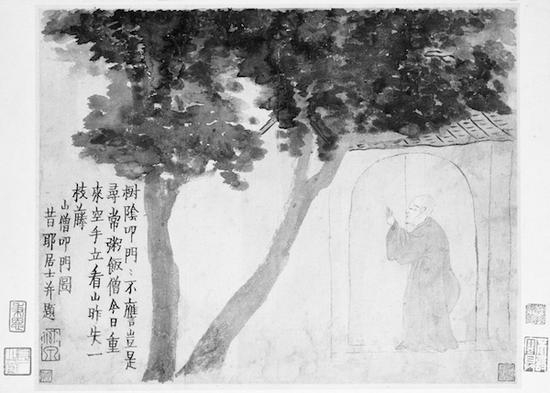 樹陰叩門〻不譍豈是
尋常粥飯僧今日重
來空手立看山昨失一
枝藤
山僧叩門圖
昔耶居士并題